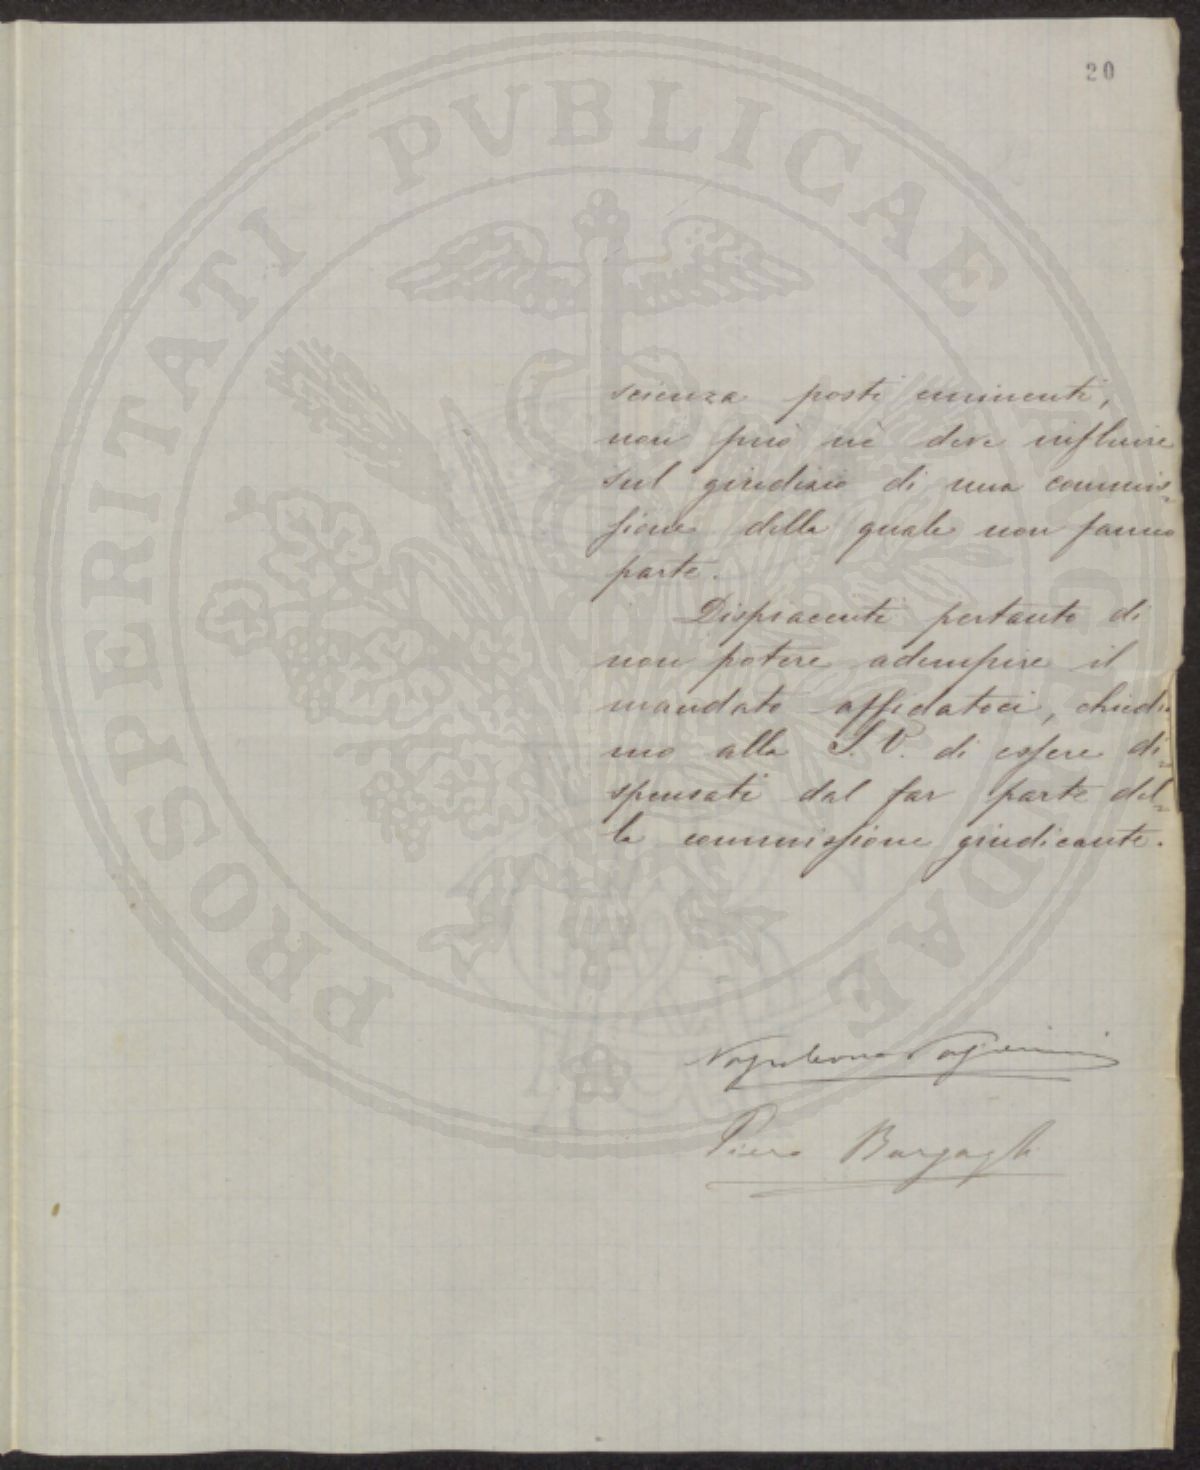 20
PROSPERITATI PVBLICAE AVGENDAE
scienza posti eminenti,
non può nè deve influire
sul giudizio di una commis=
sione della quale non fanno
parte.
Dispiacenti pertanto di
non potere adempire il
mandato affidatoci, chiedia
mo alla S. V. di essere di=
spensati dal far parte del=
la commissione giudicante.
Napoleone Passerini
Piero Bargagli